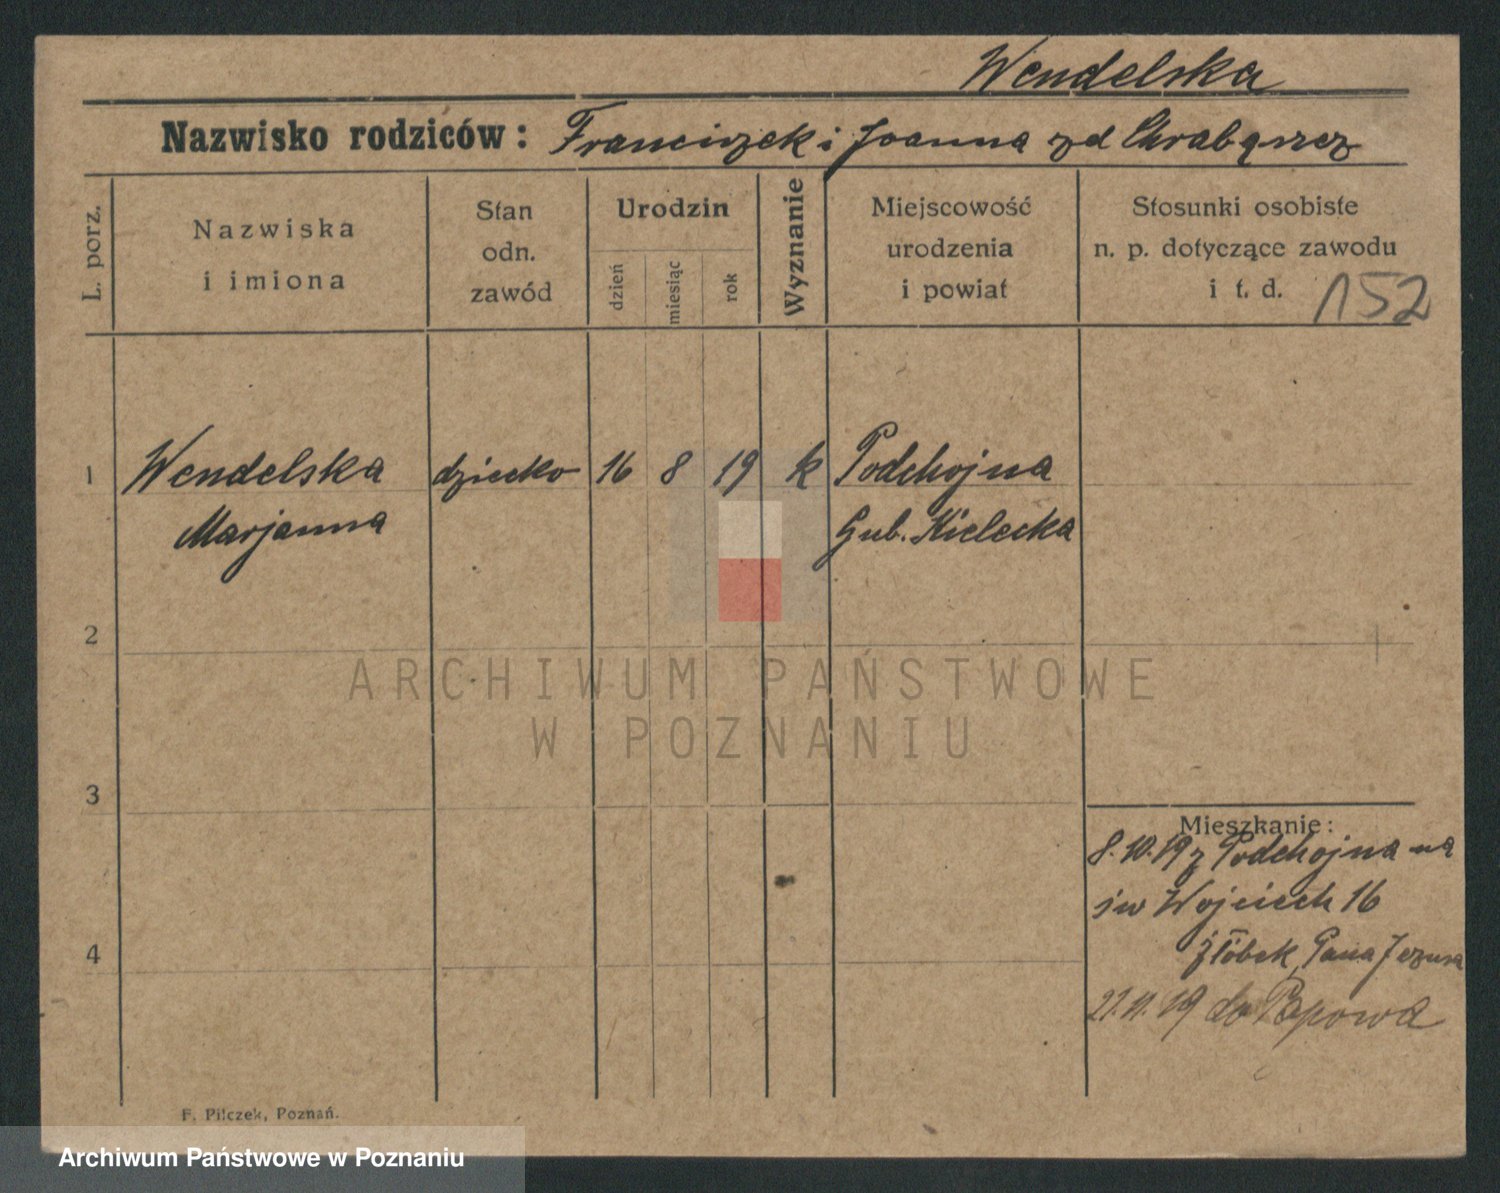 Wendelska
Nazwisko rodziców: Franciszek i Joanna zd Chrabąszcz
L. porz.
Nazwiska
i imiona
Stan
odn.
zawód
Urodzin
dzień
miesiąc
rok
Wyznanie
Miejscowość
urodzenia
i powiat
Stosunki osobiste
n. p. dotyczące zawodu
i t. d.
152
1 Wendelska dziecko 16 8 19 k Podchojna
Marjanna Gub. Kielecka
2
ARCHIWUM PAŃSTWOWE
W POZNANIU
3
Mieszkanie:
8.10.19 z Podchojna na
św Wojciech 16
żłóbek Pana Jezusa
4
21.11.19 do Papowa
F. Pilczek, Poznań.
Archiwum Państwowe w Poznaniu